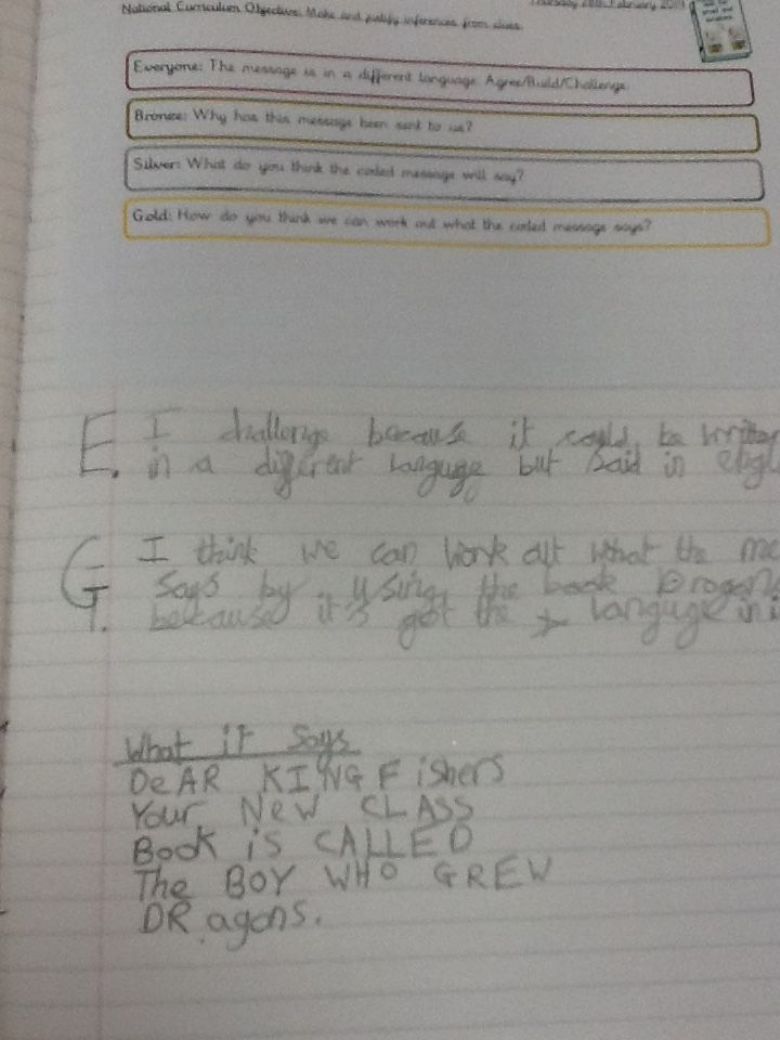 Thursday 28th February 2019
National Curriculum Objective: Make and justify inferences from clues.
Everyone: The message is in a different language. Agree/Build/Challenge
Bronze: Why has this message been sent to us?
Silver: What do you think the coded message will say?
Gold: How do you think we can work out what the coded message says?
E. I challenge because it could be written
in a different languge but said in engl
G I think we can work out what the me
says by using the book Dragon
1. because it's got the languge in i
What it Says
DeAR KINGFisherS
Your NeW CLASS
Book iS CALLED
The BOY WHO GREW
DRagons.